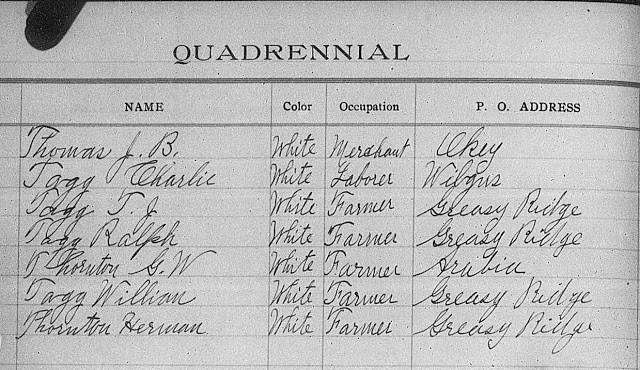 QUADRENNIAL
NAME Color Occupation P. O. ADDRESS
Thomas J. B. White Merchant Okey
Tagg Charlie White Laborer Wilgus
Tagg T. J White Farmer Greasy Ridge
Tagg Ralph White Farmer Greasy Ridge
Thornton G. W White Farmer Arabia
Tagg Willian White Farmer Greasy Ridge
Thornton Herman White Farmer Greasy Ridge